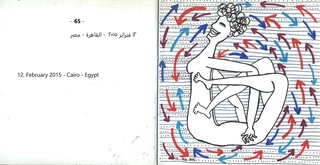 - 65 -
١٢ فبراير ٢٠١٥ - القاهرة - مصر
12. February 2015 - Cairo - Egypt